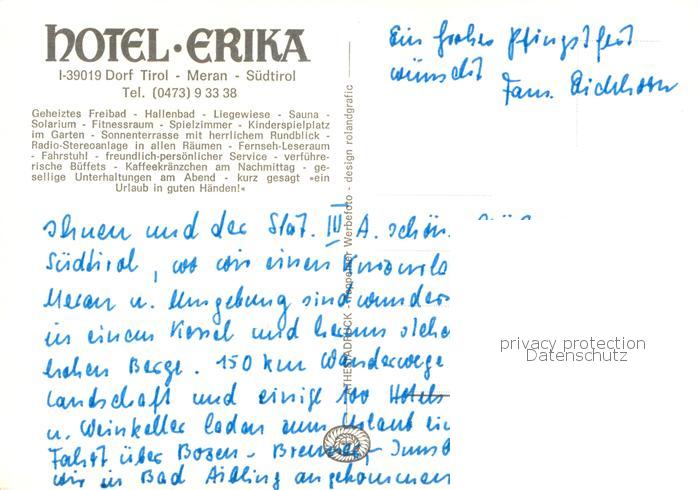 HOTEL·ERIKA
I-39019 Dorf Tirol - Meran - Südtirol
Tel. (0473) 9 33 38
Geheiztes Freibad - Hallenbad - Liegewiese - Sauna -
Solarium - Fitnessraum - Spielzimmer - Kinderspielplatz
im Garten - Sonnenterrasse mit herrlichem Rundblick -
Radio-Stereoanlage in allen Räumen - Fernseh-Leseraum
- Fahrstuhl - freundlich-persönlicher Service - verführe-
rische Büffets - Kaffeekränzchen am Nachmittag - ge-
sellige Unterhaltungen am Abend - kurz gesagt »ein
Urlaub in guten Händen!«
Ein frohes Pfingstfest
wünscht Fam. Eichhorn
Ihnen und der Stat. III A. schön.
Südtirol, wo wir einen Kurzurla
Meran u. Umgebung sind wunder
in einem Kessel und herum
hohen Berge. 150 km Wanderwege
Landschaft und einige 100 Hotels
u. Weinkeller laden zum Urlaub ein
Fahrt über Bozen - Brenner - Innsb
wir in Bad Aibling angekommen
THERMADRUCK - Toppeiner Werbefoto - design rolandgrafic
privacy protection
Datenschutz